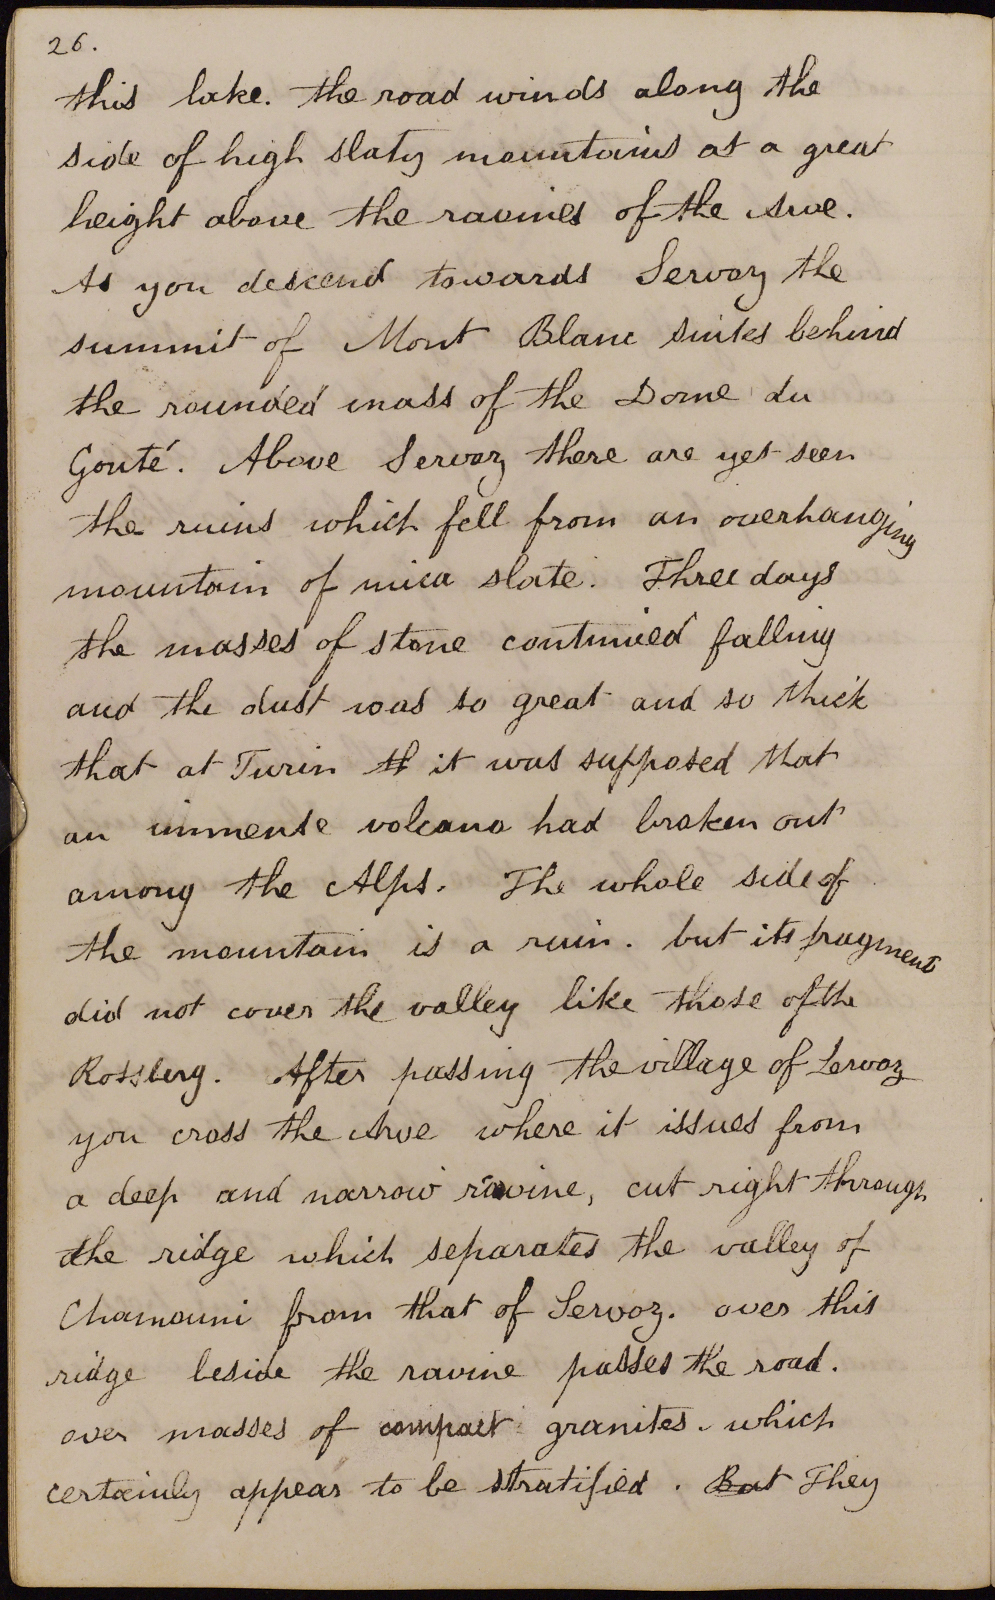 26.
this lake. the road winds along the
side of high slaty mountains at a great
height above the ravines of the Arve.
As you descend towards Servoz the
summit of Mont Blanc sinks behind
the rounded mass of the Dome du
Gouté. Above Servoz there are yet seen
the ruins which fell from an overhanging
mountain of mica slate. Three days
the masses of stone continued falling
and the dust was so great and so thick
that at Turin th it was supposed that
an immense volcano had broken out
among the Alps. The whole side of
the mountain is a ruin. but its fragments
did not cover the valley like those of the
Rossberg. After passing the village of Servoz
you cross the Arve where it issues from
a deep and narrow ravine, cut right through
the ridge which separates the valley of
Chamouni from that of Servoz. over this
ridge beside the ravine passes the road.
over masses of compact granites. which
certainly appear to be stratified. But They